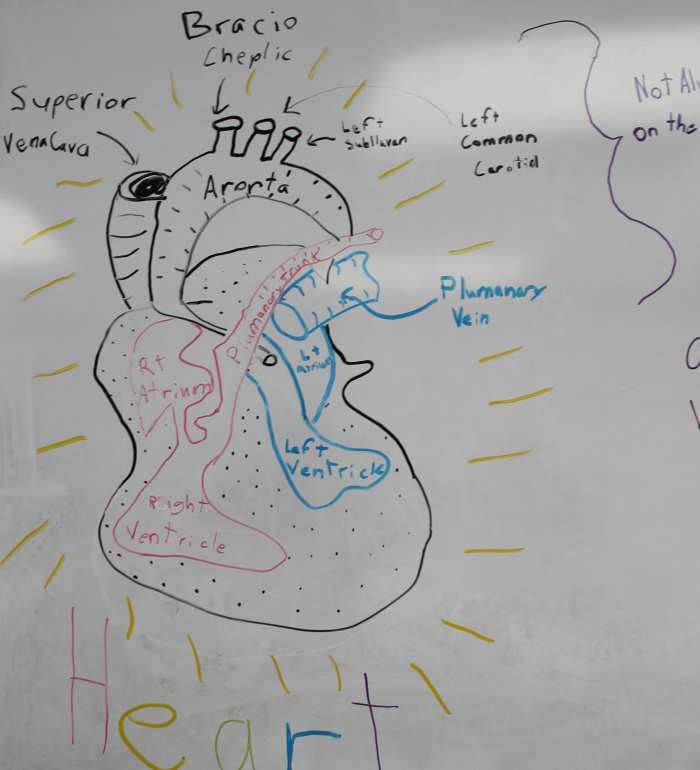 Bracio
Cheplic
Superior
Vena Cava
Left
Subllavan
Left
Common
Carotid
Arorta
Plumanary trunk
Plumanary
Vein
Rt
Atrium
Lt
Atrium
Left
Ventricle
Right
Ventricle
Heart
Not Al
on the